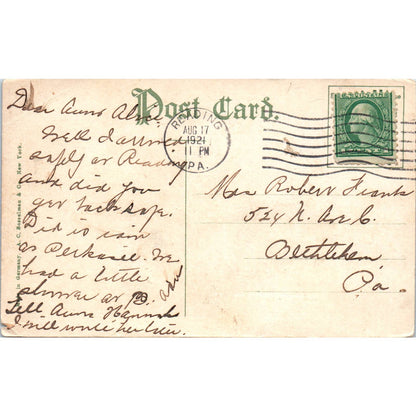 Post Card.
READING
AUG 17
1921
11 PM
PA.
Dear Aunt
Well I arrived
safely at Reading
and did you
get back safe.
Did it rain
at Perkasie. We
had a little
shower at
Tell Aunt Hannah
I will write her later.
Mrs Robert Frank
524 N. Ave C.
Bethlehem
Pa.
in Germany.
C. Bosselman & Co., New York.